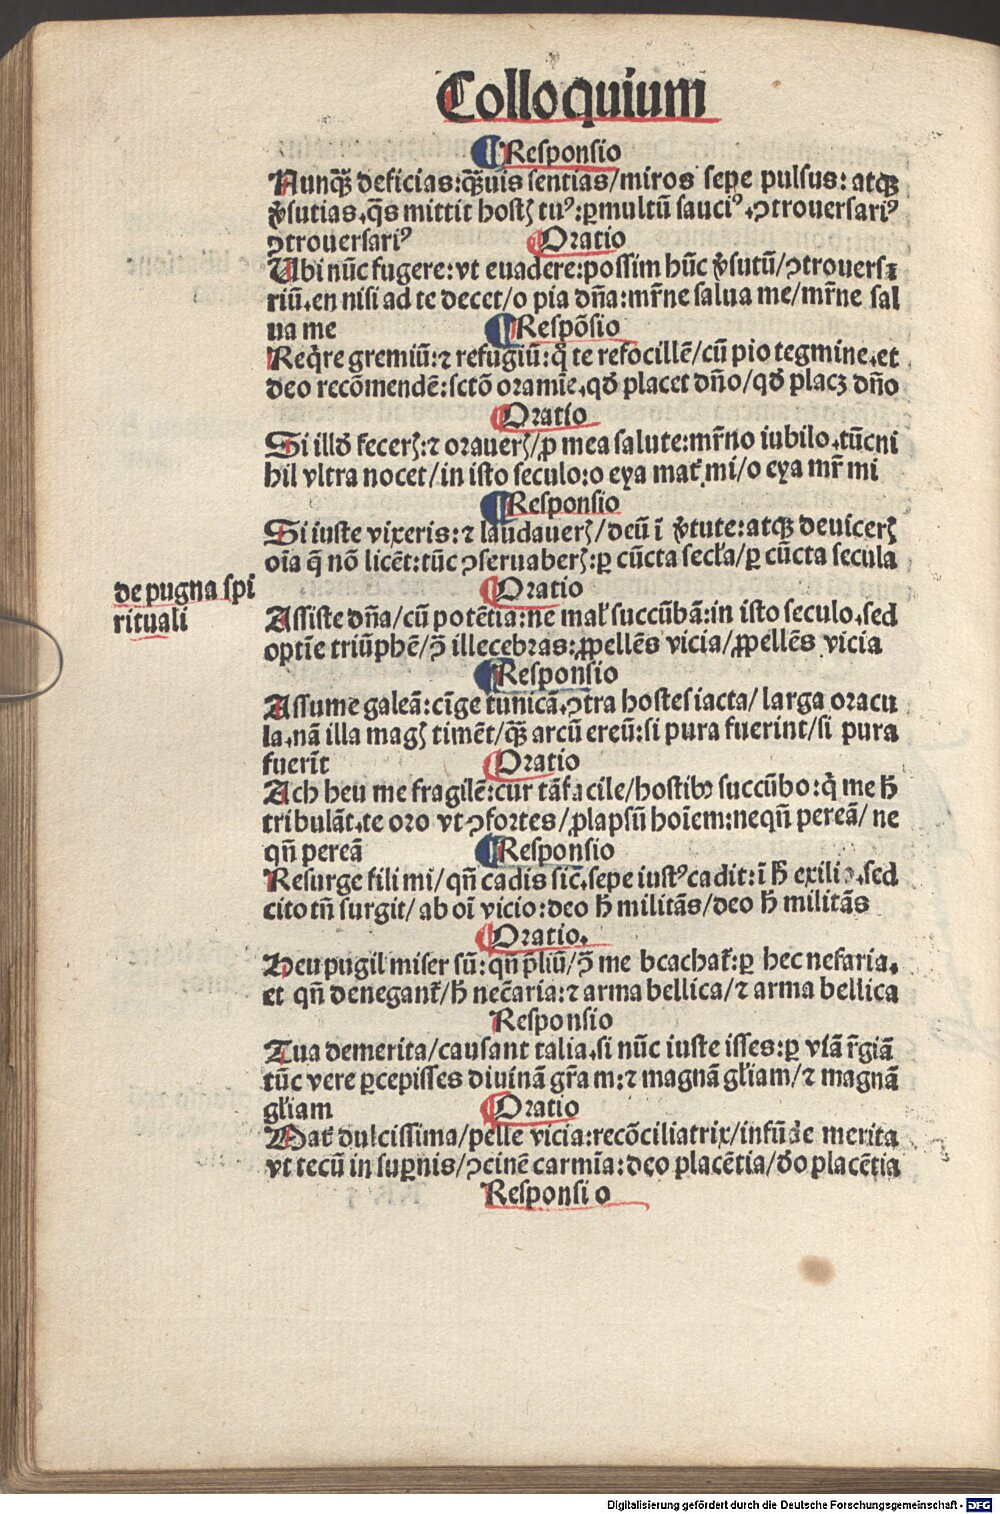 Colloquium
¶Responsio
Nunqᷓꝫ deficias:qᷓꝫuis sentias/miros sepe pulsus: atqꝫ
ꝟsutias.q̃s mittit hostꝭ tuꝰ:ꝑmultũ sauciꝰ.ꝯtrouersariꝰ
ꝯtrouersariꝰ
Oratio
Ubi nũc fugere:vt euadere:possim hũc ꝟsutũ/ꝯtrouersa
riũ.en nisi ad te decet/o pia dña:mr̃ne salua me/mr̃ne sal
ua me
¶Respõsio
Reqͥre gremiũ:⁊ refugiũ:qͥ te refocillẽ/cũ pio tegmine.et
deo recõmendẽ:sctõ oramĩe.qđ placet dño/qđ placꝫ dño
Oratio
Si illđ fecerꝭ:⁊ orauerꝭ/ꝓ mea salute:mr̃no iubilo.tũc ni
hil vltra nocet/in isto seculo:o eya mat̃ mi/o eya mr̃ mi
¶Responsio
Si iuste vixeris:⁊ laudauerꝭ/deũ ĩ ꝟtute:atqꝫ deuicerꝭ
oĩa q̃ nõ licẽt:tũc ꝯseruaberꝭ:ꝑ cũcta secl̃a/ꝑ cũcta secula
de pugna spi
rituali
Oratio
Assiste dña/cũ potẽtia:ne mal̃ succũbã:in isto seculo.sed
optĩe triũphẽ/ꝯ̃ illecebras:ꝓpellẽs vicia/ꝓpellẽs vicia
¶Responsio
Assume galeã:cĩge tunicã.ꝯtra hostes iacta/ larga oracu
la.nã illa magꝭ timẽt/qᷓꝫ arcũ ereũ:si pura fuerint/si pura
fuerĩt
Oratio
Ach heu me fragilẽ:cur tã facile/hostibꝰ succũbo:qͥ me h̃
tribulãt.te oro vt ꝯfortes/ꝓlapsũ hoĩem:nequñ pereã/ ne
qñ pereã
¶Responsio
Resurge fili mi/ qñ cadis sic̃.sepe iustꝰ cadit:ĩ h̃ exilio.sed
cito tñ surgit/ ab oĩ vicio:deo h̃ militãs/deo h̃ militãs
Oratio.
Heu pugil miser sũ:qñ p̃liũ/ꝯ̃ me bcachat̃:ꝑ hec nefaria.
et qñ denegant̃/h̃ nec̃aria:⁊ arma bellica/⁊ arma bellica
Responsio
Tua demerita/causant talia.si nũc iuste isses:ꝑ viã r̃giã
tũc vere ꝑcepisses diuinã gr̃am:⁊ magnã gl̃iam/⁊ magnã
gl̃iam
Oratio
Mat̃ dulcissima/pelle vicia:recõciliatrix/infũde merita
vt tecũ in suꝑnis/ꝯcinẽ carmĩa:deo placẽtia/đo placẽtia
Responsio
Digitalisierung gefördert durch die Deutsche Forschungsgemeinschaft - DFG